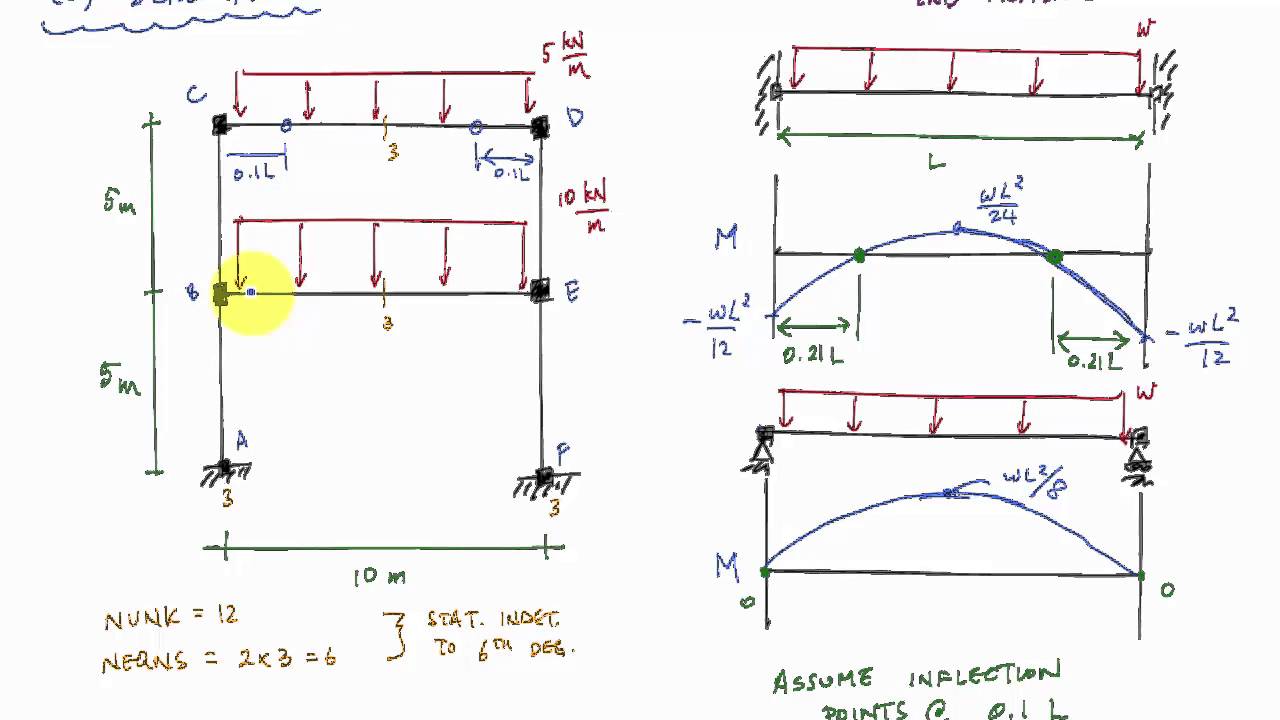 5 kN/m
C
D
3
0.1L
0.1L
5m
10 kN/m
B
E
3
5m
A
F
3
3
10 m
NUNK = 12
NEQNS = 2x3 = 6
} STAT. INDET.
TO 6TH DEG.
W
L
M
wL²/24
-wL²/12
0.21L
0.21L
-wL²/12
W
wL²/8
M
0
0
ASSUME INFLECTION
POINTS @ 0.1 L